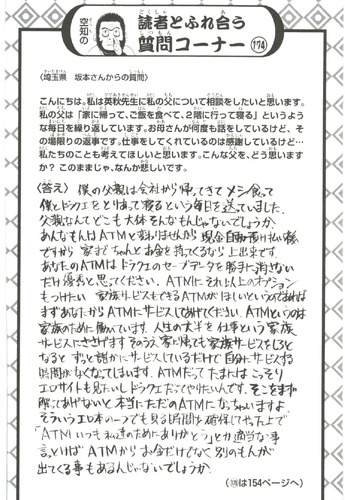 空知の
読者とふれ合う
質問コーナー 174
〈埼玉県 坂本さんからの質問〉
こんにちは。私は英秋先生に私の父について相談をしたいと思います。
私の父は「家に帰って、ご飯を食べて、2階に行って寝る」というよう
な毎日を繰り返しています。お母さんが何度も話をしているけど、そ
の場限りの返事です。仕事をしてくれているのは感謝しているけど…
私たちのことも考えてほしいと思います。こんな父を、どう思います
か？ このままじゃ、なんか悲しいです。
〈答え〉 僕の父親は会社から帰ってきてメシ食って
僕とドラクエをとりあって寝るという毎日を送っていました。
父親なんてどこも大体そんなもんじゃないでしょうか。
あんなもんはATMと変わりませんから 現金自動預け払い機
ですから 家までちゃんとお金を持ってくるなら上出来です。
あなたのATMはドラクエのセーブデータを勝手に消さない
だけ優秀と思ってください。ATMにそれ以上のオプション
もつけたい 家族サービスもできるATMがほしいというのであれば
まずあなたからATMにサービスしてあげてください。ATMというのは
家族のために働いています。人生の大半を仕事という家族
サービスにささげます そのうえ 家に帰っても家族サービスをしろと
なると ずっと誰かにサービスしているだけで自分にサービスする
時間がなくなってしまいます。ATMだって たまには こっそり
エロサイトも見たいしドラクエだってやりたいんです。そこをまず
解ってあげないと 本当にただのATMになっちゃいますよ
そういうエロ本の一つでも見る時間を確保してやった上で
「ATMいつも私達のためにありがとう」とか適当な事
言えば ATMから お金だけでなく 別のもんが
出てくる事もあるんじゃないでしょうか
(175は154ページへ)